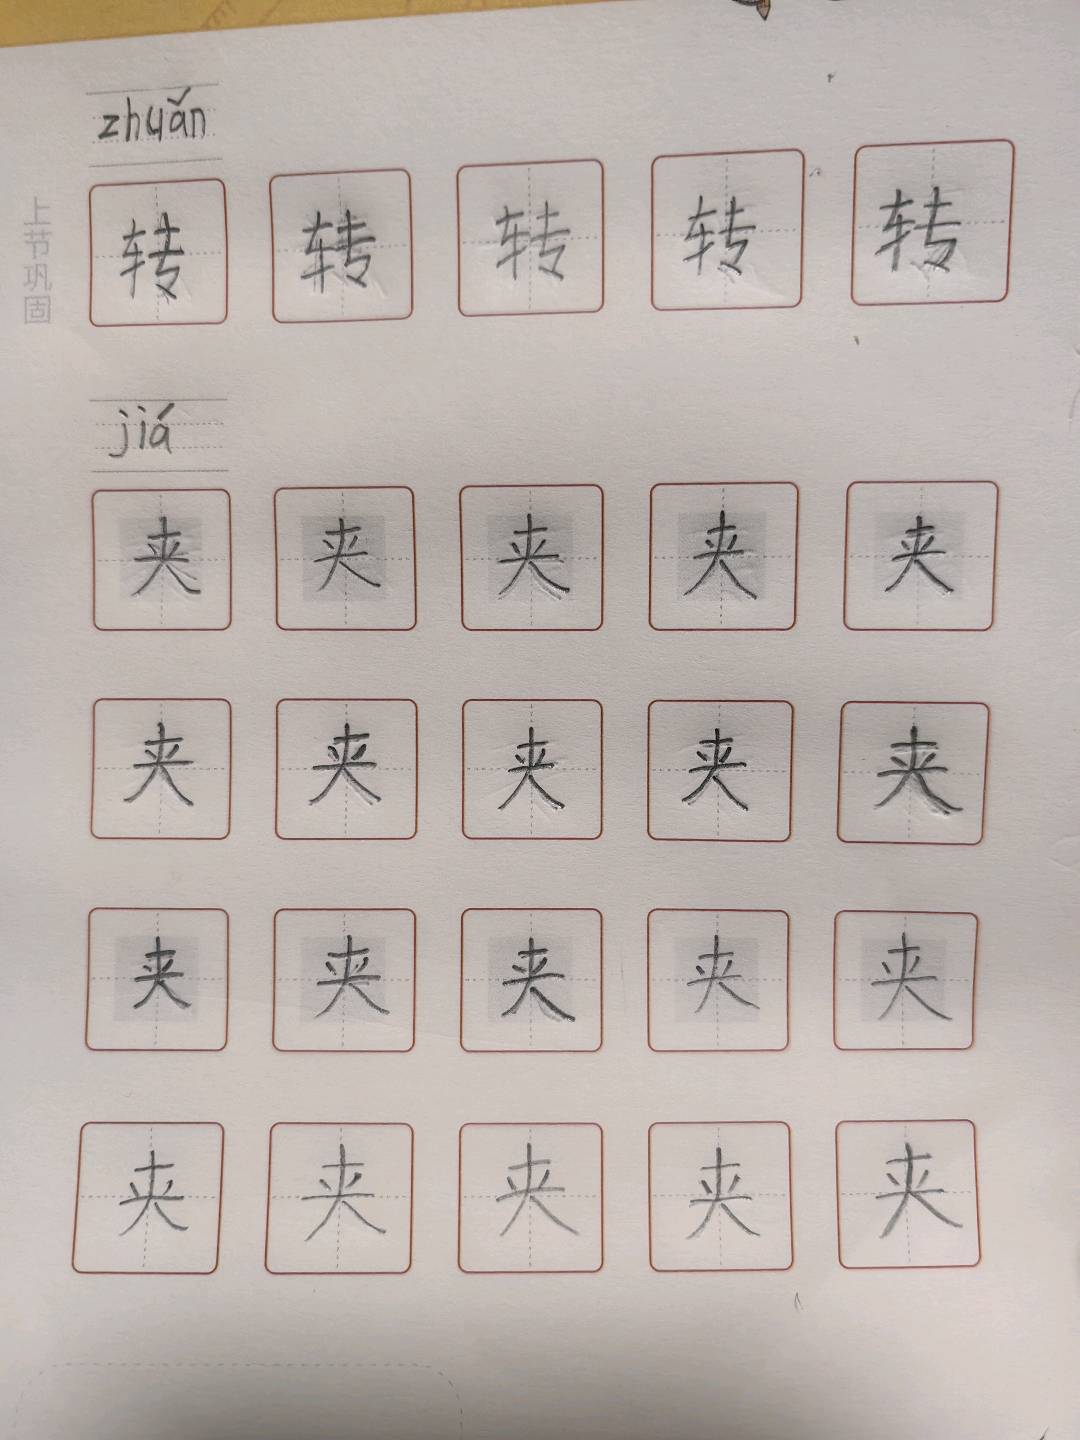 zhuǎn
上节巩固
转 转 转 转 转
jiá
夹 夹 夹 夹 夹
夹 夹 夹 夹 夹
夹 夹 夹 夹 夹
夹 夹 夹 夹 夹